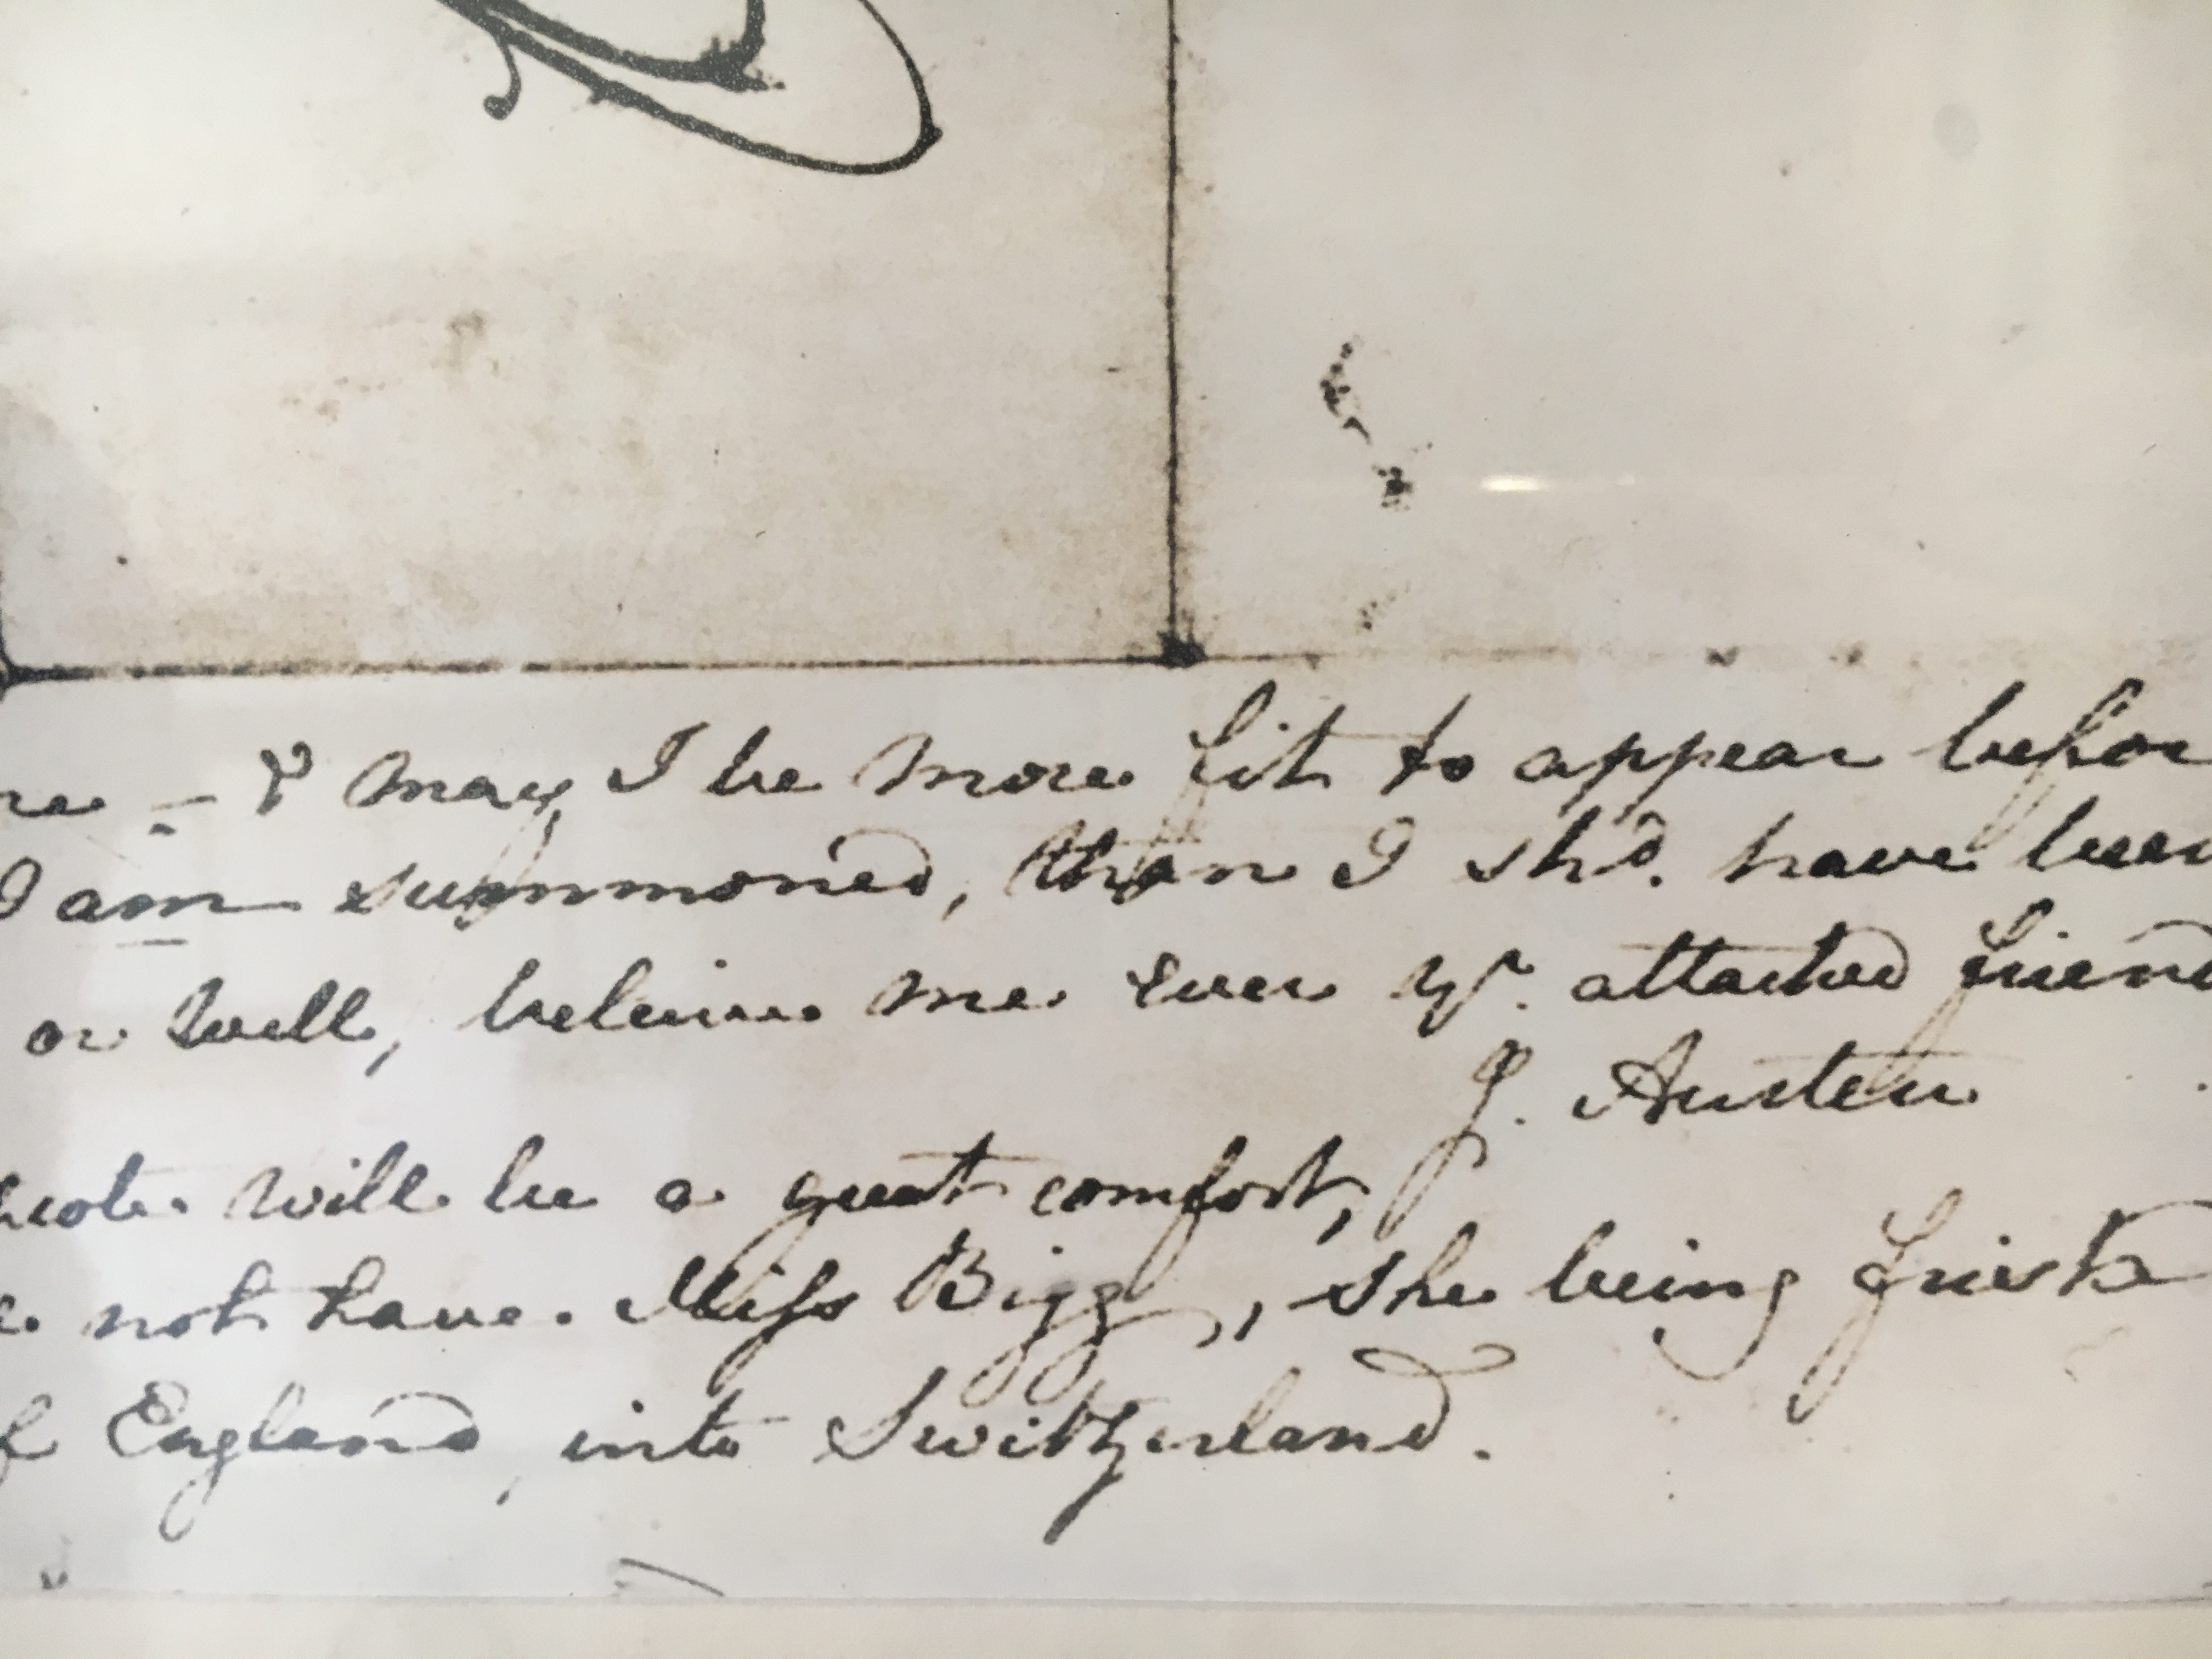 re - & may I be more fit to appear befor
I am summoned, than I shd. have been
or well, beleive me ever yr. attached friend
J. Austen
will be a great comfort,
not have Miss Bigg, she being frisk
England, into Switzerland.